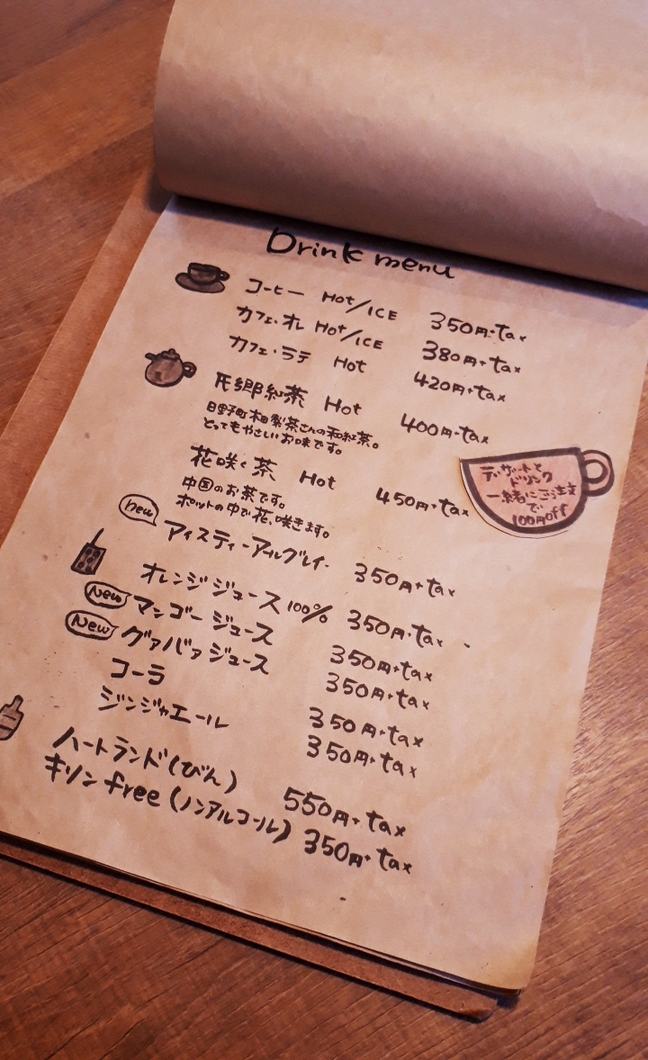 Drink menu
コーヒー Hot/ICE 350円+tax
カフェ・オレ Hot/ICE 380円+tax
カフェ・ラテ Hot 420円+tax
郷紅茶 Hot 400円+tax
日野町 製茶さんの和紅茶。
とってもやさしいお味です。
花咲く茶 Hot 450円+tax
中国のお茶です。
ポットの中で花、咲きます。
デザートと
ドリンク
一緒にご注文
で
100円off
new アイスティーアールグレイ 350円+tax
オレンジジュース100% 350円+tax
New マンゴージュース 350円+tax
New グァバァジュース 350円+tax
コーラ 350円+tax
ジンジャエール 350円+tax
ハートランド(びん) 550円+tax
キリンfree(ノンアルコール) 350円+tax